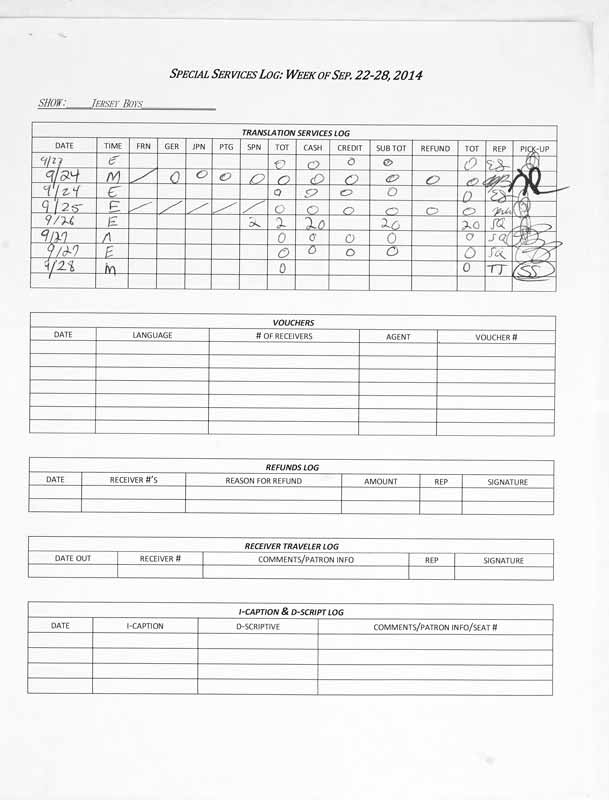 SPECIAL SERVICES LOG: WEEK OF SEP. 22-28, 2014
SHOW: JERSEY BOYS
TRANSLATION SERVICES LOG
DATE TIME FRN GER JPN PTG SPN TOT CASH CREDIT SUB TOT REFUND TOT REP PICK-UP
9/23 E 0 0 0 0 0
9/24 M / 0 0 0 0 0 0 0 0 0 0
9/24 E 0 0 0 0 0
9/25 E / / / / / 0 0 0 0 0 0
9/26 E 2 2 20 20 20 SQ
9/27 0 0 0 0 0 SQ
9/27 E 0 0 0 0 0 SQ
9/28 M 0 0 TT SS
VOUCHERS
DATE LANGUAGE # OF RECEIVERS AGENT VOUCHER #
REFUNDS LOG
DATE RECEIVER #'S REASON FOR REFUND AMOUNT REP SIGNATURE
RECEIVER TRAVELER LOG
DATE OUT RECEIVER # COMMENTS/PATRON INFO REP SIGNATURE
I-CAPTION & D-SCRIPT LOG
DATE I-CAPTION D-SCRIPTIVE COMMENTS/PATRON INFO/SEAT #